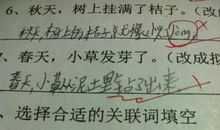 6、秋天，树上挂满了桔子。(改
秋天,树上的桔子
、春天，小草发芽了。（改成拟
春天,小草从泥土里钻了出来
、选择合适的关联词填空